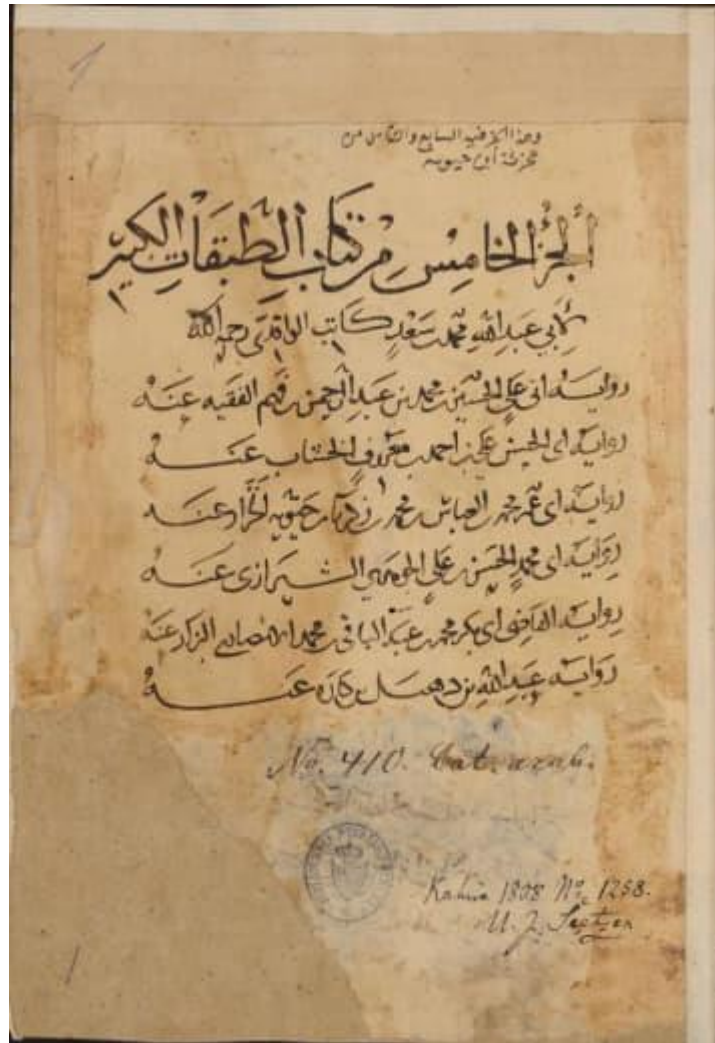 1
وهذا الجزء فيه السابع والثامن من
تجزئة ابن حيويه
الجزء الخامس من كتاب الطبقات الكبير
لأبي عبد الله محمد بن سعد كاتب الواقدي رحمه الله
رواية ابى على الحسين بن محمد بن عبد الرحمن بن فهم الفقيه عنه
رواية ابى الحسن على بن احمد بن معروف الخشاب عنه
رواية ابى عمر محمد بن العباس بن محمد بن زكريا بن حيويه الخزاز عنه
رواية ابى محمد الحسن بن على الجوهري الشيرازى عنه
رواية القاضى ابى بكر محمد بن عبد الباقى بن محمد الانصارى البزاز عنه
رواية عبد الله بن دهبل بن كاره عنه
No. 410. Cat. arab.
Kahira 1808 No. 1258.
U. J. Seetzen